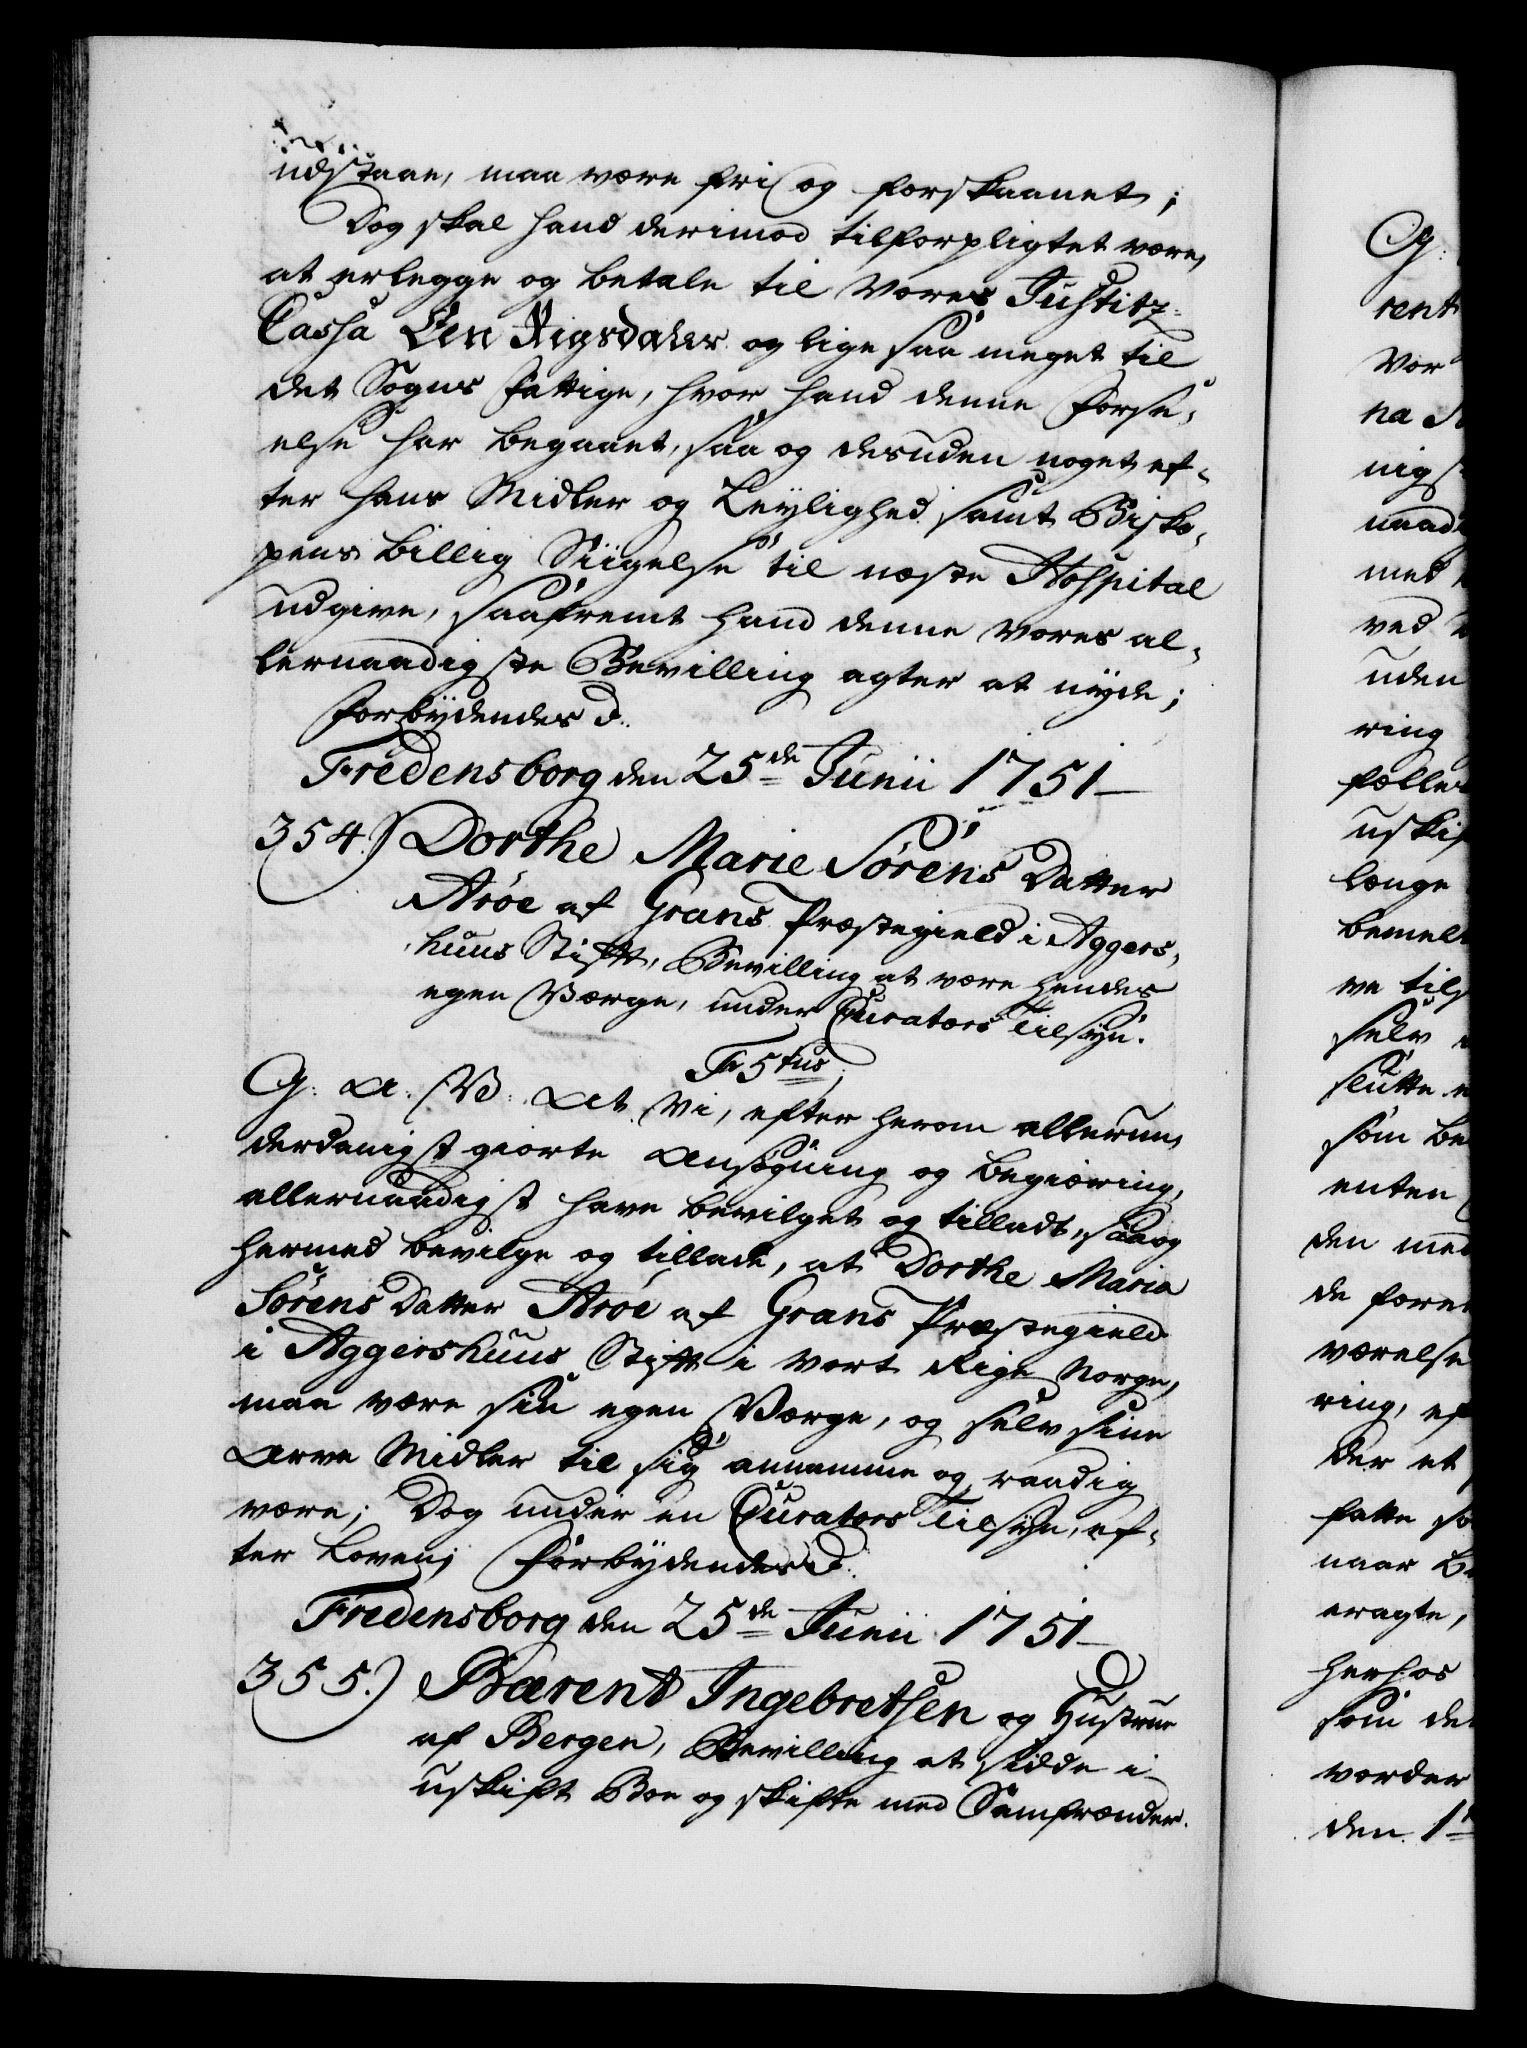 udstaae, maa være fri og forskaanet;
Dog skal hand derimod tilforpligtet være,
at erlegge og betale til Vores Justitz-
Cassa Een Rigsdaler og lige saa meget til
det Sogns Fattige, hvor hand denne Forse-
else har begaaet, saa og desuden noget ef-
ter hans Midler og Leylighed samt Bisko-
pens billig Siigelse til næste Hospital
udgive, saafremt hand denne Vores al-
lernaadigste Bevilling agter at nyde;
Forbydendes &.
Fredensborg den 25de Junii 1751
354.) Dorthe Marie Sørens Datter
Arøe af Grans Præstegield i Aggers-
huus Stift, Bevilling at være hendes
egen Værge, under Curators Tilsyn.
Fr 5tus;
G: A: V: At Vi, efter herom allerun-
derdanigst giorte Ansøgning og Begiæring,
allernaadigst have bevilget og tilladt, saa og
hermed bevilge og tillade, at Dorthe Maria
Sørens Datter Arøe af Grans Præstegield
i Aggershuus Stift i Vort Rige Norge,
maa være sin egen Værge, og selv sine
Arve Midler til sig annamme og raadig
være; Dog under en Curators Tilsyn, ef-
ter Loven; Forbydendes &.
Fredensborg den 25de Junii 1751
355.) Bærent Ingebretsen og Hustrue
af Bergen, Bevilling at sidde i
uskift Boe og skifte med Samfrænder.
G:
rent
Vor
na
nigs
naad
med
ved
uden
ring
fælles
uskif
længe
bemel
ve tils
selv
slutte
som be
enten
den med
de fore
værelse
ring, ef
der et
fatte so
naar
eragte,
herhos
som de
vorder
den 1